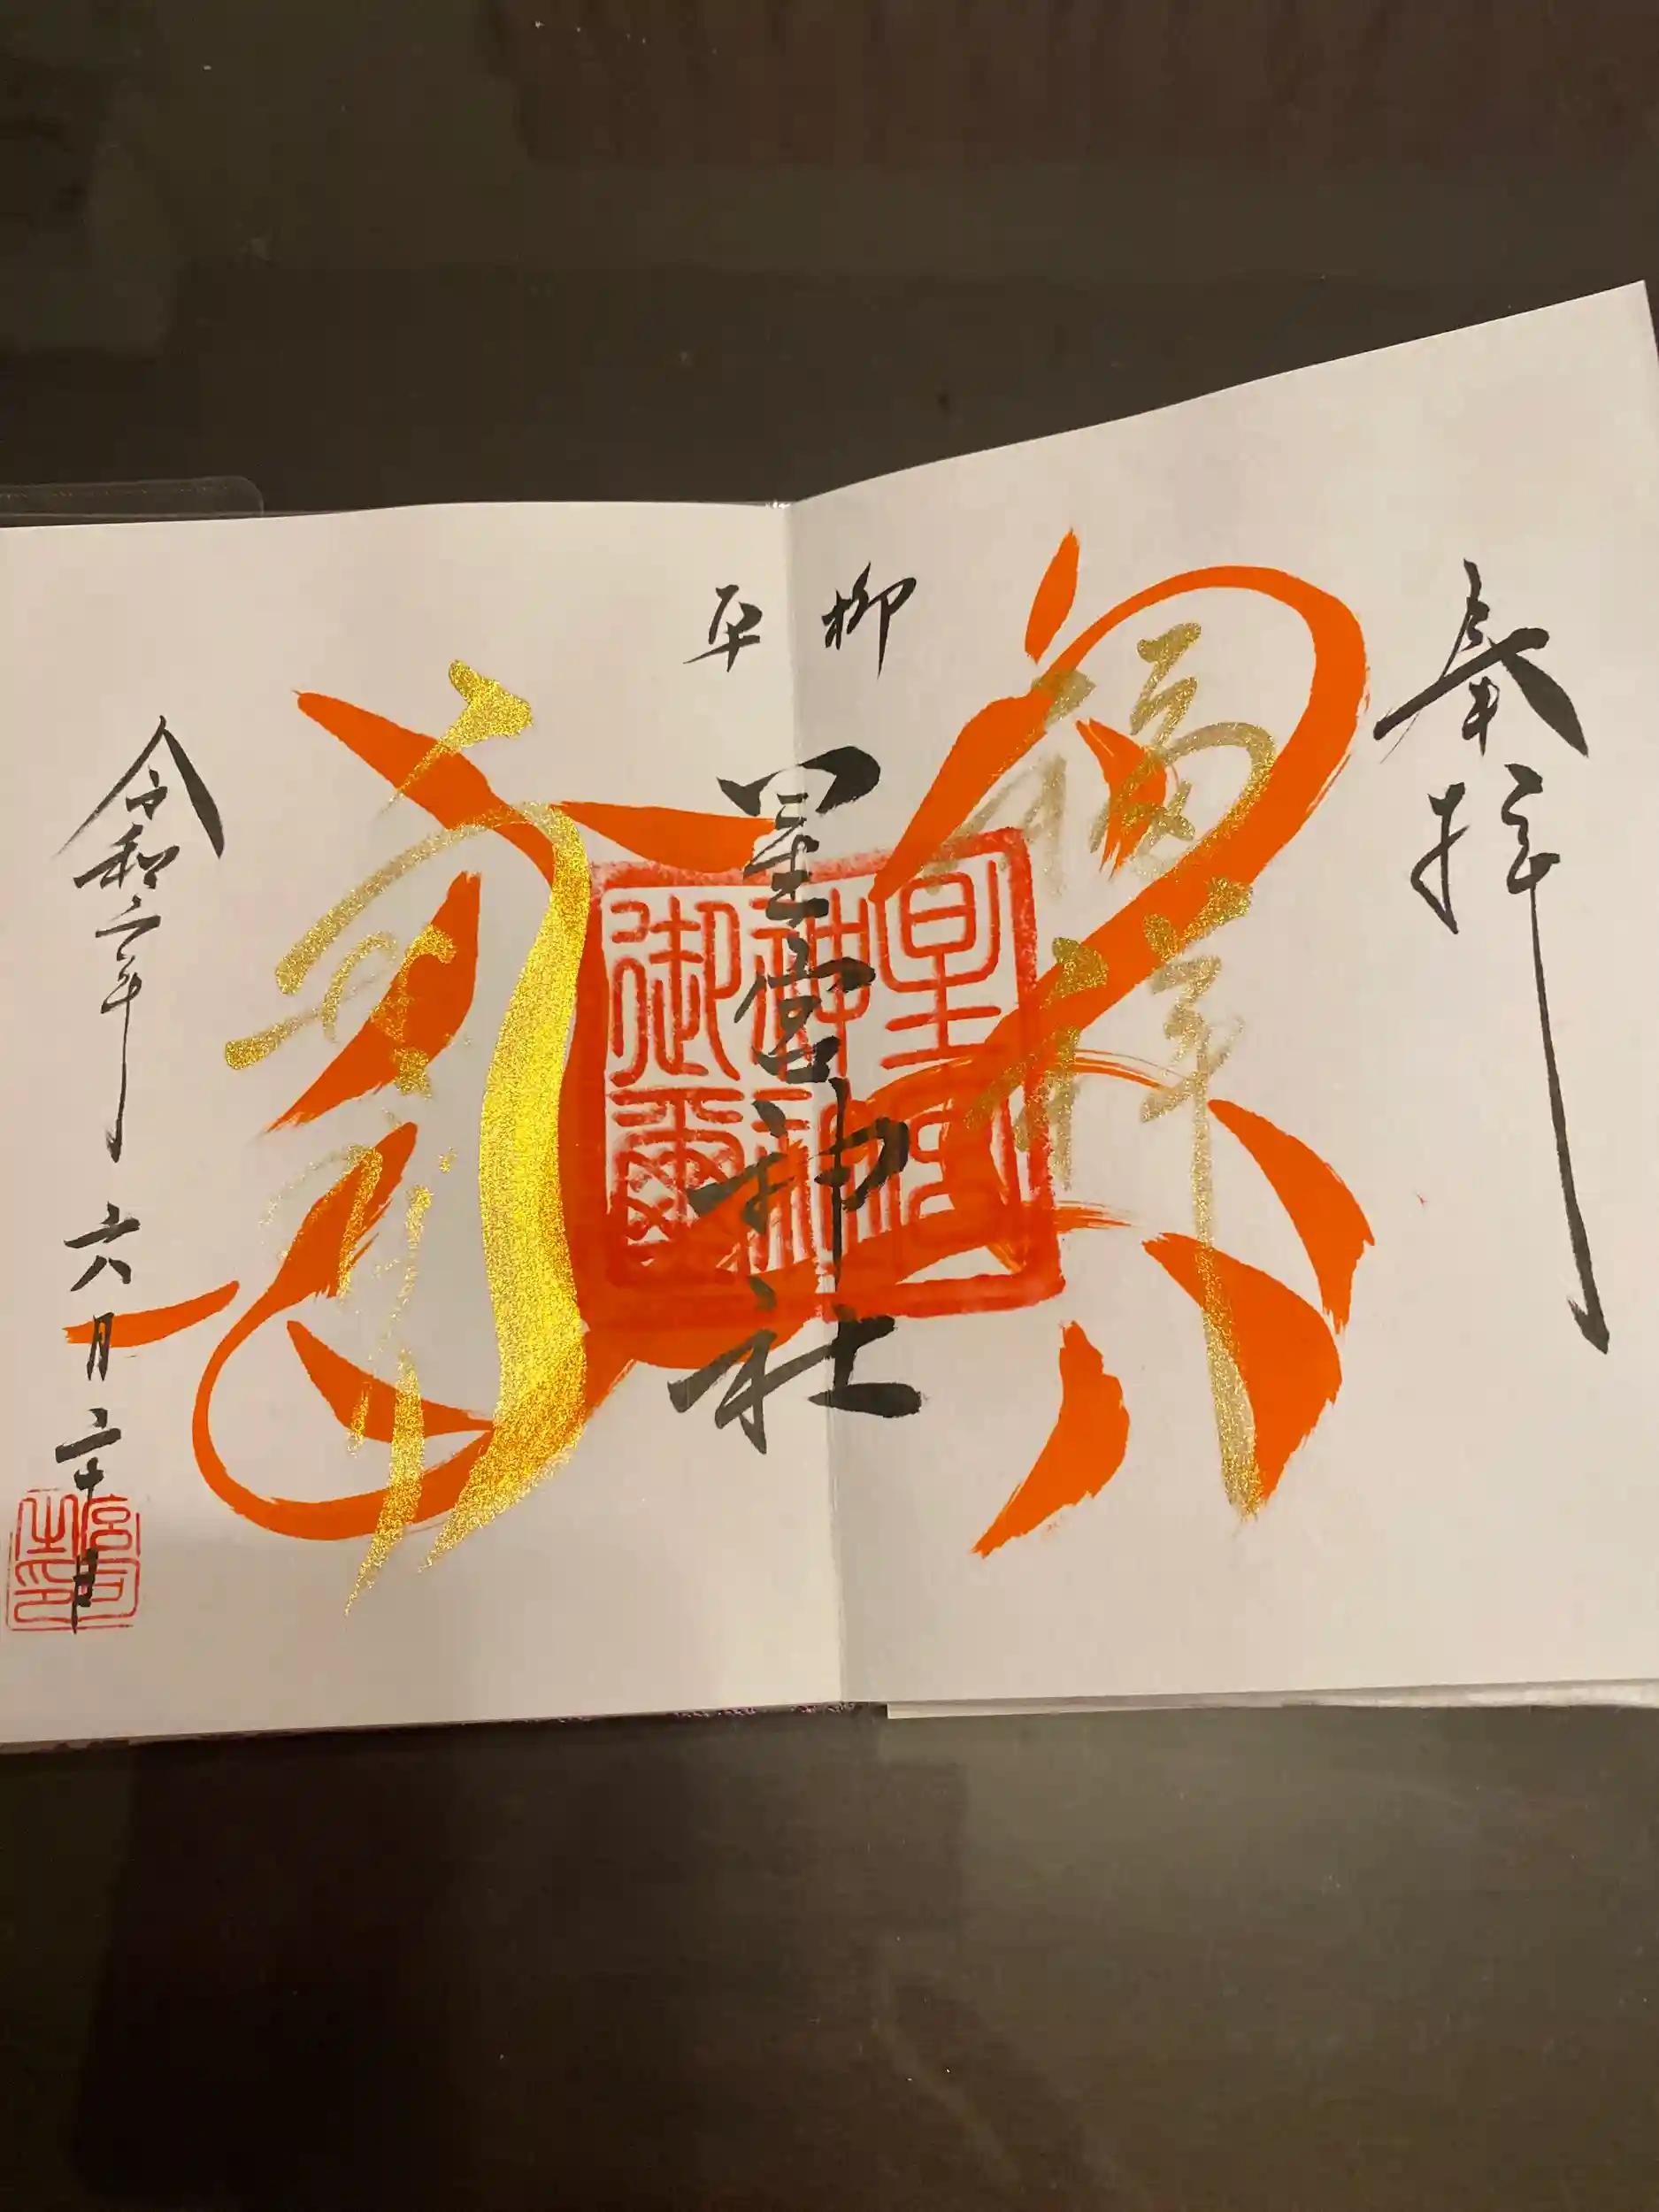 奉拝
福祥
平柳
星宮神社
星宮
神社
御璽
令和二年六月二十日
宮司
之印